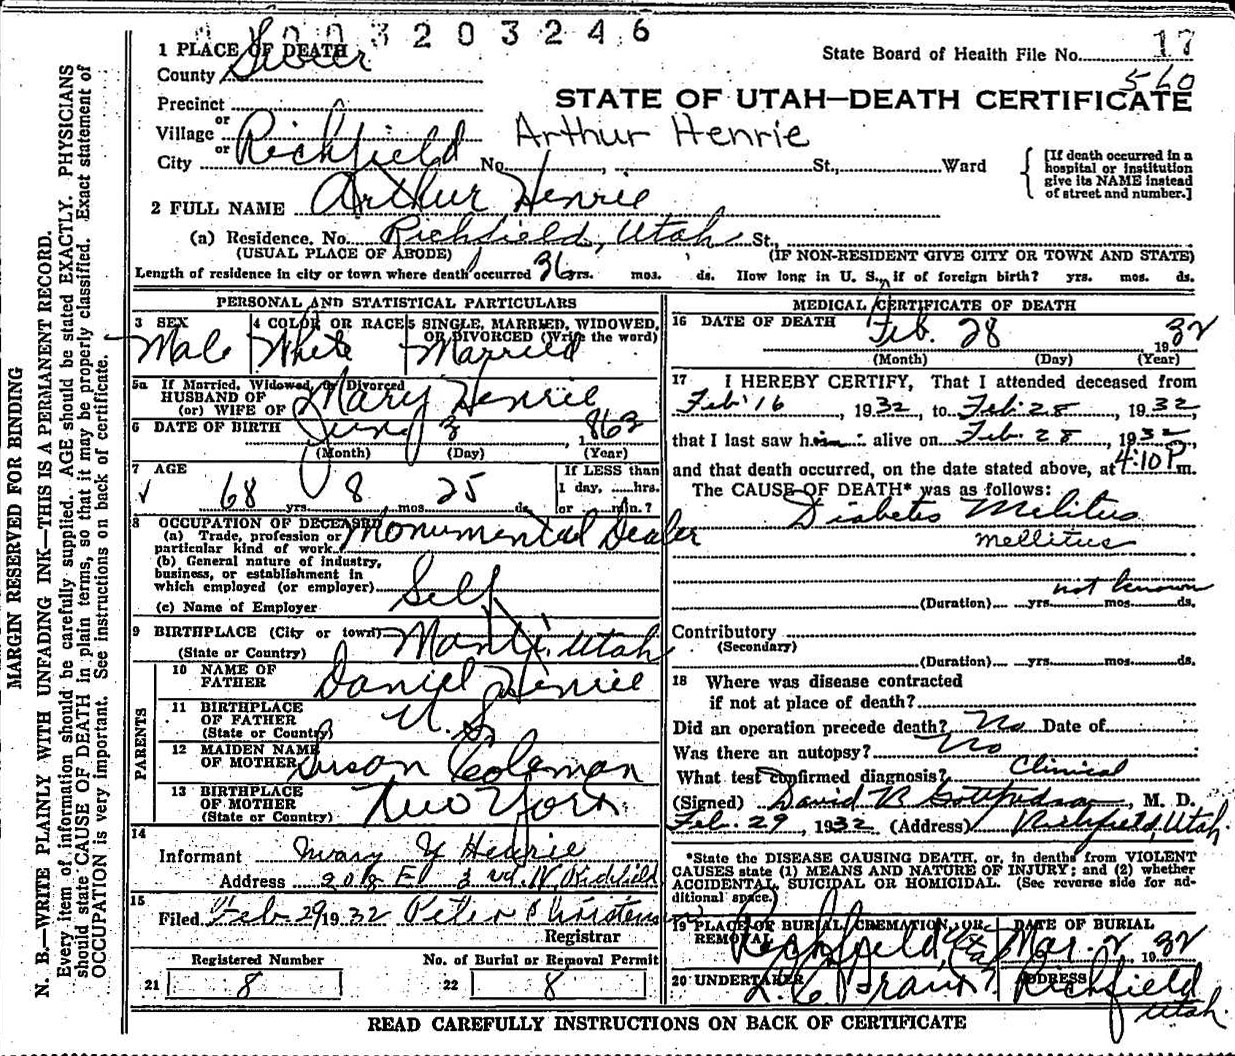 003203246
State Board of Health File No. 17
560
1 PLACE OF DEATH
County Sevier
STATE OF UTAH—DEATH CERTIFICATE
Precinct
or
Village
or
City Richfield No. St., Ward
Arthur Henrie
[If death occurred in a hospital or institution give its NAME instead of street and number.]
2 FULL NAME Arthur Henrie
(a) Residence. No. Richfield, Utah St.,
(USUAL PLACE OF ABODE) (IF NON-RESIDENT GIVE CITY OR TOWN AND STATE)
Length of residence in city or town where death occurred 36 yrs. mos. ds. How long in U. S., if of foreign birth? yrs. mos. ds.
PERSONAL AND STATISTICAL PARTICULARS
3 SEX
Male
4 COLOR OR RACE
White
5 SINGLE, MARRIED, WIDOWED, OR DIVORCED (Write the word)
Married
5a If Married, Widowed, or Divorced
HUSBAND OF
(or) WIFE OF Mary Henrie
6 DATE OF BIRTH June 3, 1863
(Month) (Day) (Year)
7 AGE
√ 68 yrs. 8 mos. 25 ds.
If LESS than
1 day, ......hrs.
or ...... min.?
8 OCCUPATION OF DECEASED
(a) Trade, profession or
particular kind of work Monumental Dealer
(b) General nature of industry,
business, or establishment in
which employed (or employer) Self
(c) Name of Employer
9 BIRTHPLACE (City or town) Manti, Utah
(State or Country)
PARENTS
10 NAME OF
FATHER Daniel Henrie
11 BIRTHPLACE
OF FATHER U. S.
(State or Country)
12 MAIDEN NAME
OF MOTHER Susan Coleman
13 BIRTHPLACE
OF MOTHER New York
(State or Country)
14
Informant Mary Y Henrie
Address 208 E 3rd N, Richfield
15
Filed Feb. 29 1932 Peter Christensen
Registrar
Registered Number
21 8
No. of Burial or Removal Permit
22 8
MEDICAL CERTIFICATE OF DEATH
16 DATE OF DEATH Feb. 28 1932
(Month) (Day) (Year)
17 I HEREBY CERTIFY, That I attended deceased from
Feb. 16, 1932, to Feb. 28, 1932,
that I last saw him alive on Feb. 28, 1932,
and that death occurred, on the date stated above, at 4:10 P m.
The CAUSE OF DEATH* was as follows:
Diabetes Melitus
mellitus
not known
(Duration) yrs. mos. ds.
Contributory
(Secondary)
(Duration) yrs. mos. ds.
18 Where was disease contracted
if not at place of death?
Did an operation precede death? No Date of
Was there an autopsy? No
What test confirmed diagnosis? Clinical
(Signed) David R Gottfredson, M. D.
Feb. 29, 1932 (Address) Richfield, Utah.
*State the DISEASE CAUSING DEATH, or, in deaths from VIOLENT
CAUSES state (1) MEANS AND NATURE OF INJURY; and (2) whether
ACCIDENTAL, SUICIDAL OR HOMICIDAL. (See reverse side for ad-
ditional space.)
19 PLACE OF BURIAL, CREMATION, OR
REMOVAL Richfield, Utah
DATE OF BURIAL
Mar. 2, 1932
20 UNDERTAKER
ADDRESS
Richfield
Utah.
READ CAREFULLY INSTRUCTIONS ON BACK OF CERTIFICATE
MARGIN RESERVED FOR BINDING
N. B.—WRITE PLAINLY WITH UNFADING INK—THIS IS A PERMANENT RECORD.
Every item of information should be carefully supplied. AGE should be stated EXACTLY. PHYSICIANS
should state CAUSE OF DEATH in plain terms, so that it may be properly classified. Exact statement of
OCCUPATION is very important. See instructions on back of certificate.